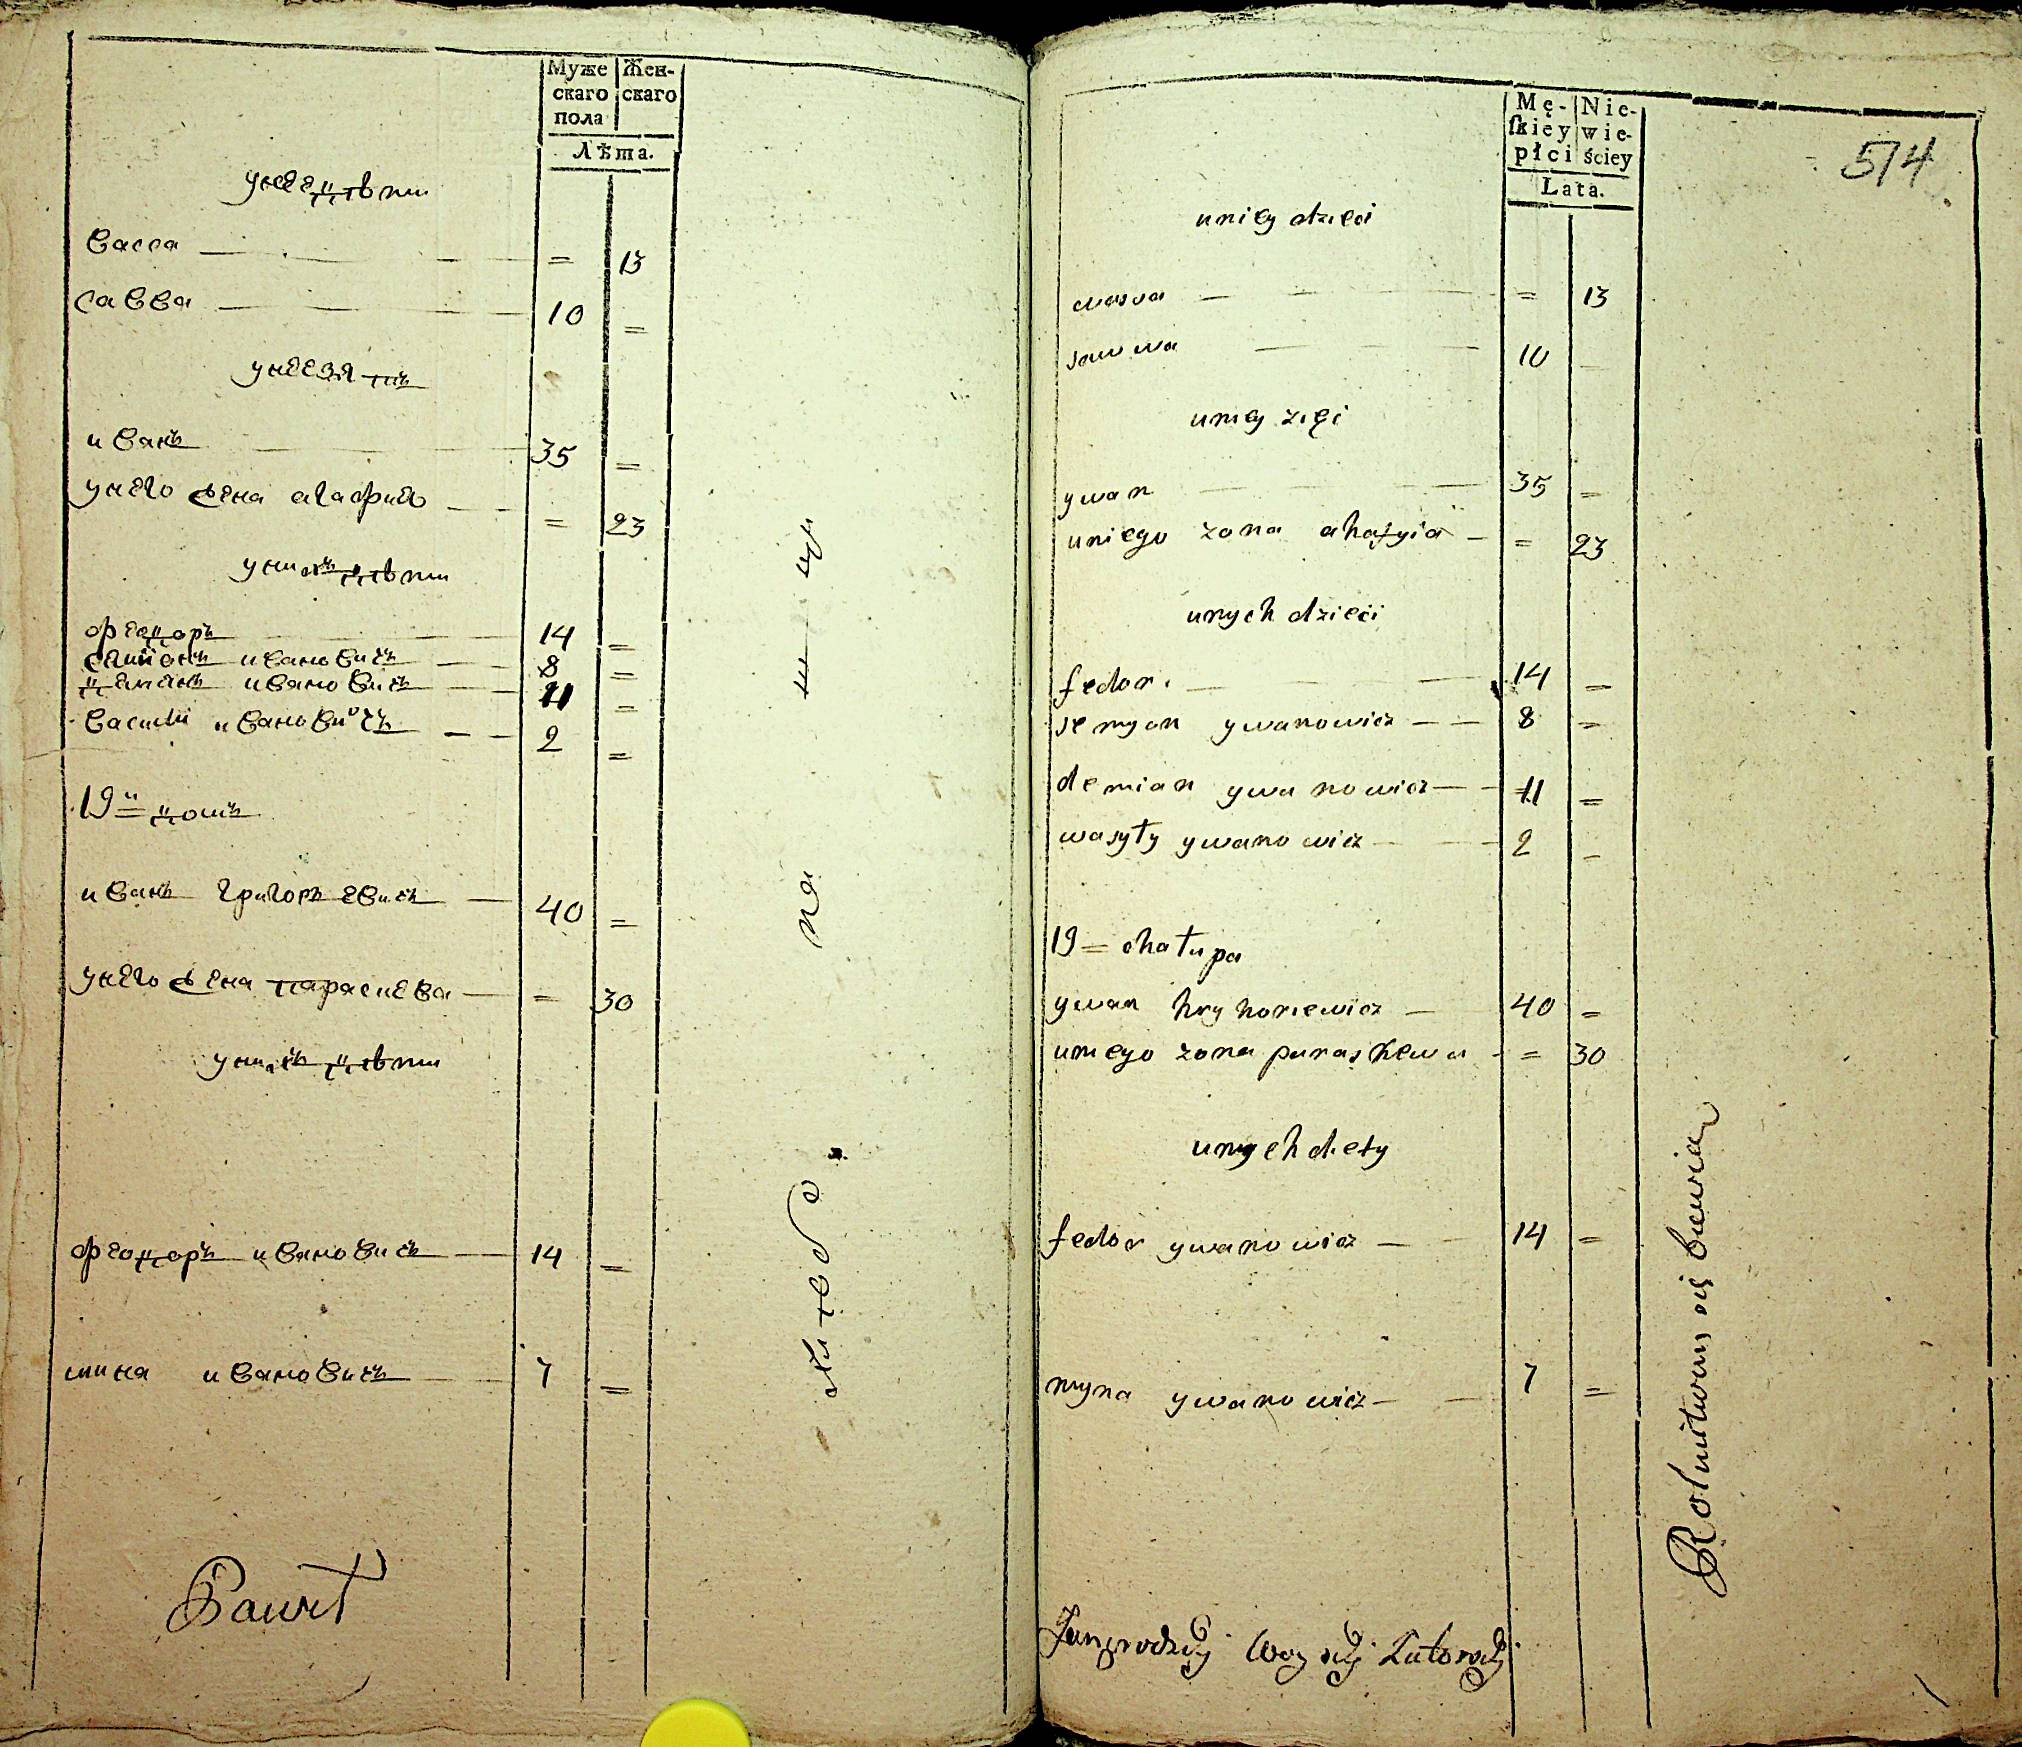 Муже
скаго
пола
Жен-
скаго
Лѣта.
унее дѣти
васса — = 13
савва — 10 =
унее зят
иванъ 35 =
унего жена агафия — = 23
уних дѣти
феодоръ 14 =
семионъ ивановичъ — 8 =
демианъ ивановичъ — 11 =
василий ивановичъ — 2 =
19й домъ
иванъ григорьевичъ — 40 =
унего жена параскева — = 30
уних дѣти
феодоръ ивановичъ — 14 =
мина ивановичъ — 7 =
Mę-
skiey
płci
Nie-
wie-
ściey
Lata.
514
uniey dzieci
wassa — = 13
sawwa — 10 —
uniey zięć
ywan — 35 =
uniego zona ahafyia — = 23
unych dzieci
fedor — 14 =
semyon ywanowicz — 8 =
demian ywanowicz — 11 =
wasyły ywanowicz — 2 =
19 = chałupa
ywan hryhoriewicz — 40 =
uniego zona paraskewa - = 30
unych diety
fedor ywanowicz — 14 =
myna ywanowicz — 7 =